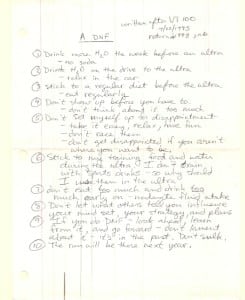 written after VT 100
7/22/1995
A DNF
① Drink more H₂O the week before an ultra
- no soda
② Drink H₂O on the drive to the ultra
- relax in the car
③ Stick to a regular diet before the ultra
- eat regularly
④ Don't show up before you have to
- don't think about it too much
⑤ Don't set myself up to disappointment
- take it easy, relax, have fun
- don't race them
- don't get disappointed if you aren't
where you want to be
⑥ Stick to my training food and water
during the ultra. I don't train
with sports drinks - so why should
I use them in the ultra
⑦ Don't eat too much and drink too
much early on - moderate fluid intake
⑧ Don't let what others tell you influence
your mind set, your strategy, and plans
⑨ If you do DNF - look ahead, learn
from it, and go forward - don't lament
about it - it's in the past. Don't sulk.
⑩ The run will be there next year.